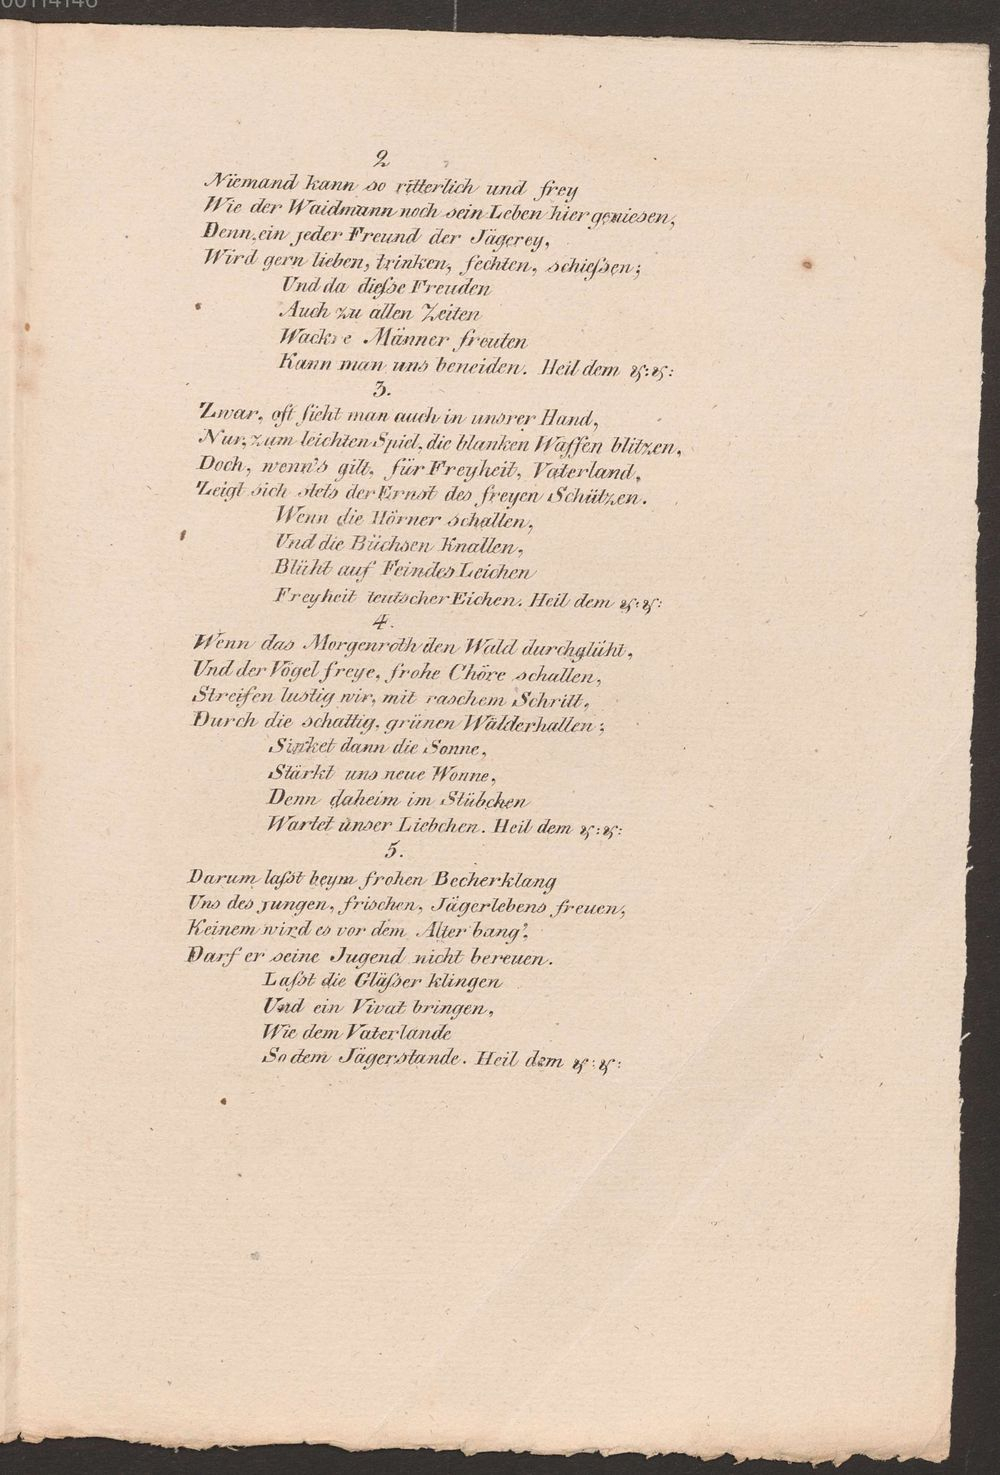 00114146
2
Niemand kann so ritterlich und frey
Wie der Waidmann noch sein Leben hier geniesen,
Denn, ein jeder Freund der Jägerey,
Wird gern lieben, trinken, fechten, schieſsen;
Und da dieſse Freuden
Auch zu allen Zeiten
Wackre Männer freuten
Kann man uns beneiden. Heil dem &:&:
3.
Zwar, oft ſieht man auch in unsrer Hand,
Nur, zum leichten Spiel, die blanken Waffen blitzen,
Doch, wenn's gilt, für Freyheit, Vaterland,
Zeigt sich stets der Ernst des freyen Schützen.
Wenn die Hörner schallen,
Und die Büchsen Knallen,
Blüht auf Feindes Leichen
Freyheit teutscher Eichen. Heil dem &:&:
4.
Wenn das Morgenroth den Wald durchglüht,
Und der Vögel freye, frohe Chöre schallen,
Streifen lustig wir, mit raschem Schritt,
Durch die schattig, grünen Wälderhallen;
Sinket dann die Sonne,
Stärkt uns neue Wonne,
Denn daheim im Stübchen
Wartet unser Liebchen. Heil dem &:&:
5.
Darum laſst beym frohen Becherklang
Uns des jungen, frischen, Jägerlebens freuen,
Keinem wird es vor dem Alter bang',
Darf er seine Jugend nicht bereuen.
Laſst die Gläſser klingen
Und ein Vivat bringen,
Wie dem Vaterlande
So dem Jägerstande. Heil dem &:&: